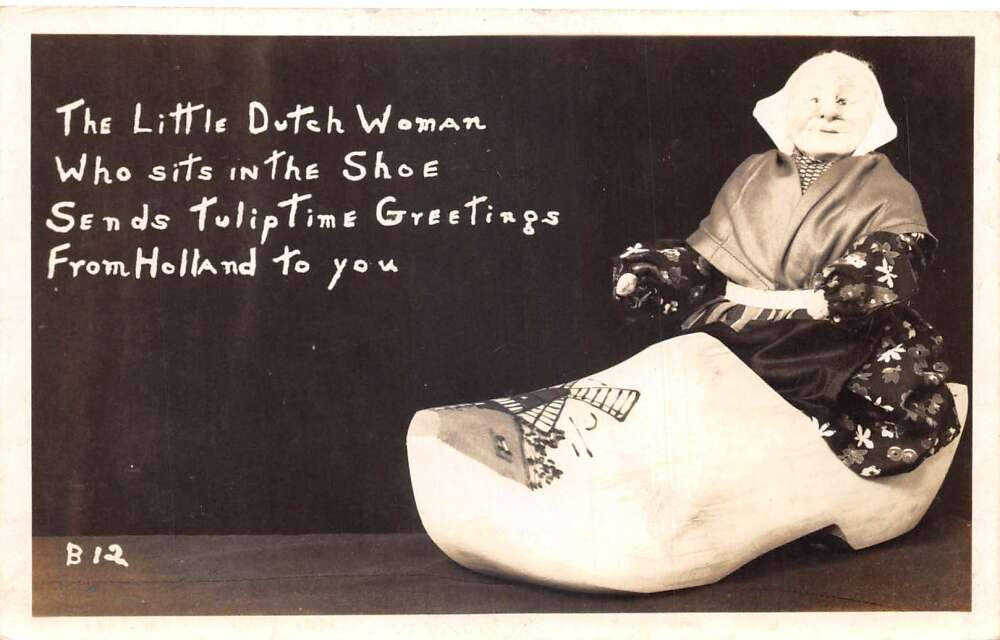 The Little Dutch Woman
Who sits in the Shoe
Sends Tulip Time Greetings
From Holland to you
B 12